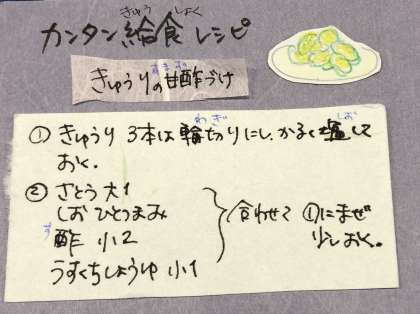 カンタン給食レシピ
きゅう しょく
きゅうりの甘酢づけ
あまず
① きゅうり 3本は輪切りにし、かるく塩して
わぎ しお
おく。
② さとう 大1
しお ひとつまみ
酢 小2
す
うすくちしょうゆ 小1
合わせて ①にまぜ
少しおく。